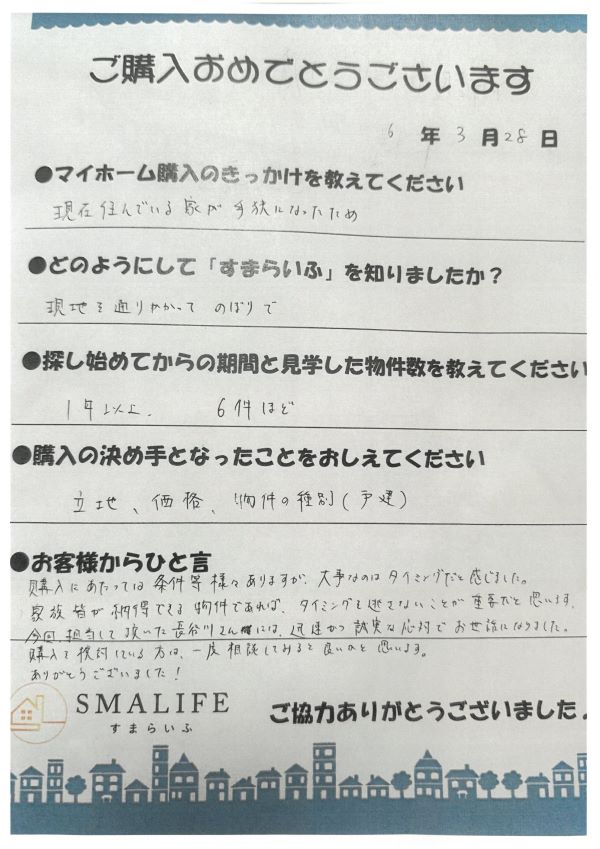 ご購入おめでとうございます
6 年 3 月 28 日
●マイホーム購入のきっかけを教えてください
現在住んでいる家が手狭になったため
●どのようにして「すまらいふ」を知りましたか？
現地を通りかかって のぼりで
●探し始めてからの期間と見学した物件数を教えてください
1年以上. 6件ほど
●購入の決め手となったことをおしえてください
立地、価格、物件の種別(戸建)
●お客様からひと言
購入にあたっては条件等様々ありますが、大事なのはタイミングだと感じました。
家族皆が納得できる物件であれば、タイミングを逃さないことが重要だと思います。
今回担当して頂いた長谷川さんには、迅速かつ誠実な応対でお世話になりました。
購入を検討している方は、一度相談してみると良いのと思います。
ありがとうございました!
SMALIFE
すまらいふ
ご協力ありがとうございました♪